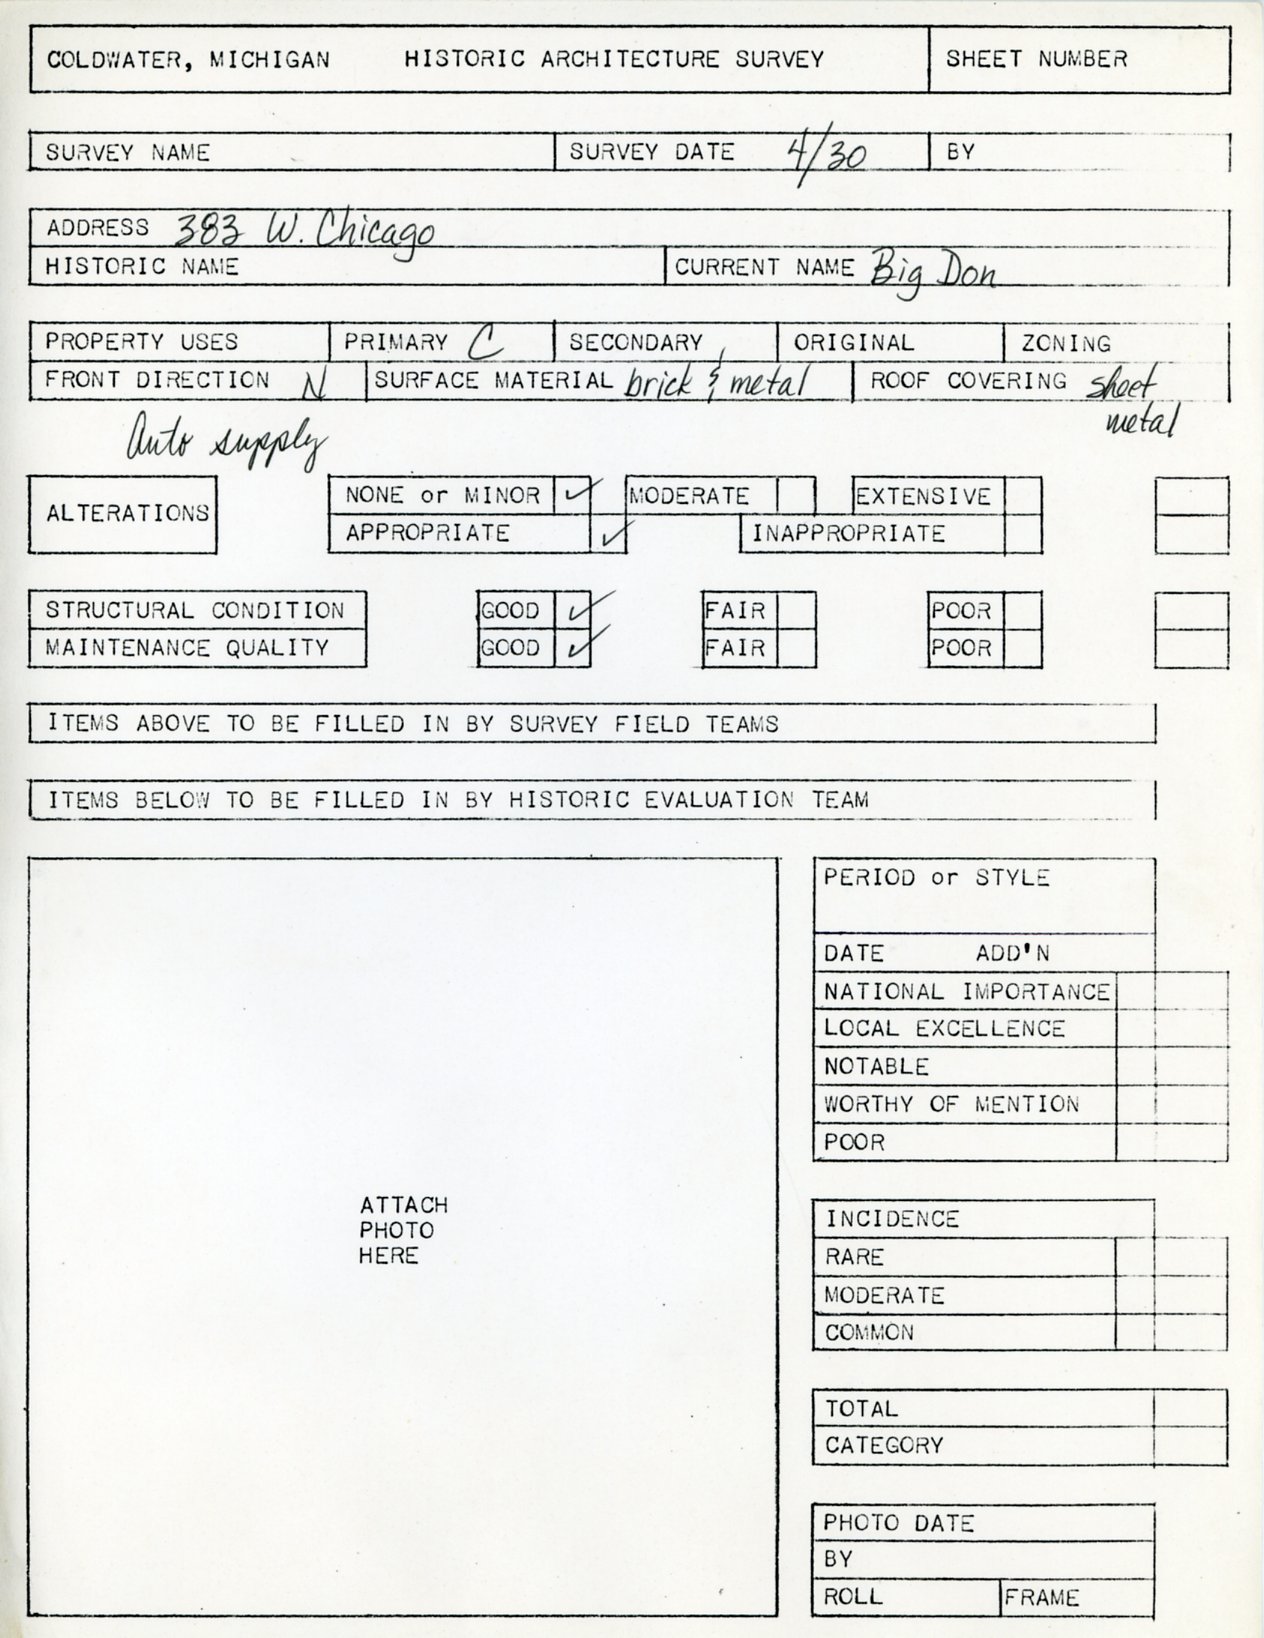 COLDWATER, MICHIGAN HISTORIC ARCHITECTURE SURVEY SHEET NUMBER
SURVEY NAME SURVEY DATE 4/30 BY
ADDRESS 383 W. Chicago
HISTORIC NAME CURRENT NAME Big Don
PROPERTY USES PRIMARY C SECONDARY ORIGINAL ZONING
FRONT DIRECTION N SURFACE MATERIAL brick & metal ROOF COVERING sheet
metal
Auto supply
ALTERATIONS
NONE or MINOR ✓ MODERATE EXTENSIVE
APPROPRIATE ✓ INAPPROPRIATE
STRUCTURAL CONDITION GOOD ✓ FAIR POOR
MAINTENANCE QUALITY GOOD ✓ FAIR POOR
ITEMS ABOVE TO BE FILLED IN BY SURVEY FIELD TEAMS
ITEMS BELOW TO BE FILLED IN BY HISTORIC EVALUATION TEAM
ATTACH
PHOTO
HERE
PERIOD or STYLE
DATE ADD'N
NATIONAL IMPORTANCE
LOCAL EXCELLENCE
NOTABLE
WORTHY OF MENTION
POOR
INCIDENCE
RARE
MODERATE
COMMON
TOTAL
CATEGORY
PHOTO DATE
BY
ROLL FRAME